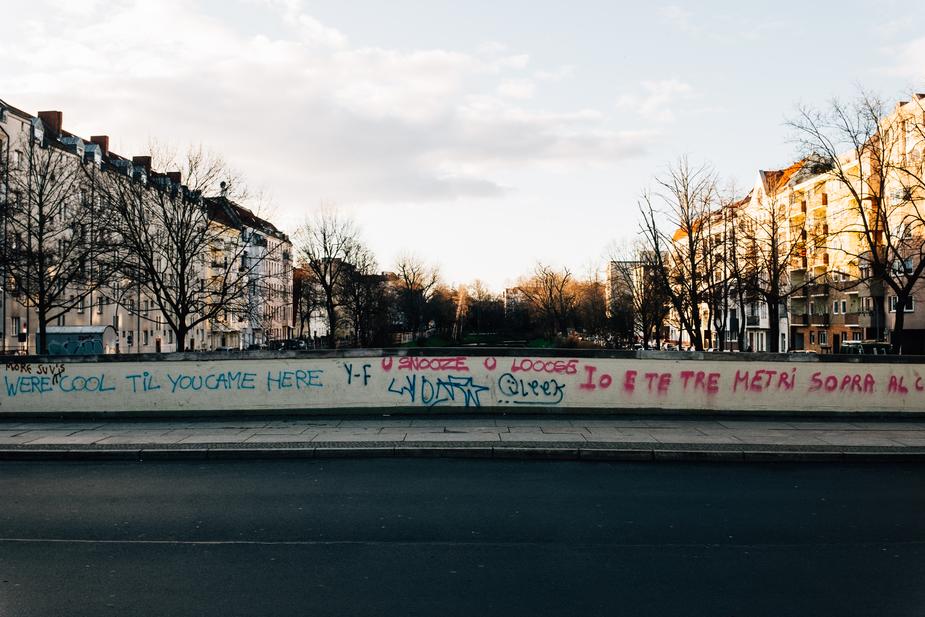 MORE SUV'S
WERE COOL TIL YOU CAME HERE
Y-F
U SNOOZE U LOOOSE
@LEEK
IO E TE TRE METRI SOPRA AL C